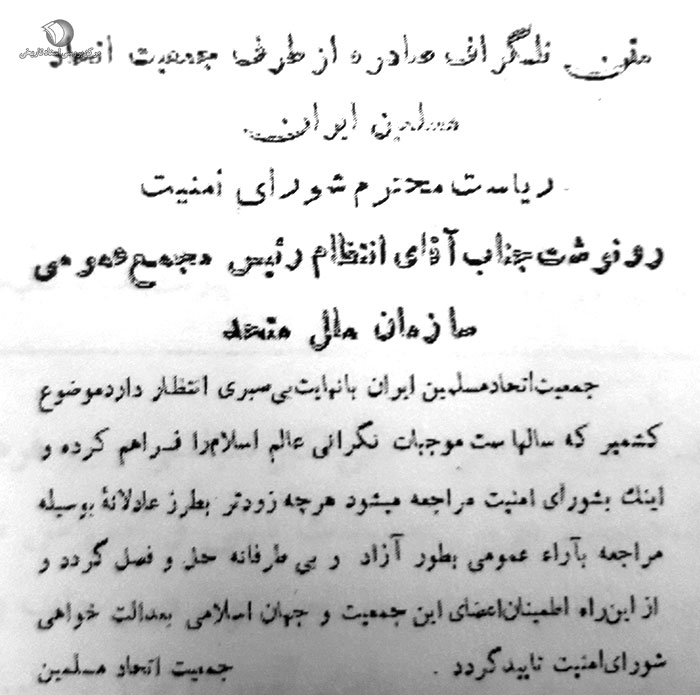 مرکز بررسی اسناد تاریخی
متن تلگراف صادره از طرف جمعیت اتحاد
مسلمین ایران
ریاست محترم شورای امنیت
رونوشت جناب آقای انتظام رئیس مجمع عمومی
سازمان ملل متحد
جمعیت اتحاد مسلمین ایران با نهایت بی صبری انتظار دارد موضوع
کشمیر که سالهاست موجبات نگرانی عالم اسلام را فراهم کرده و
اینک بشورای امنیت مراجعه میشود هرچه زودتر بطرز عادلانهٔ بوسیله
مراجعه بآراء عمومی بطور آزاد و بی طرفانه حل و فصل گردد و
از این راه اطمینان اعضای این جمعیت و جهان اسلامی بعدالت خواهی
شورای امنیت تایید گردد . جمعیت اتحاد مسلمین